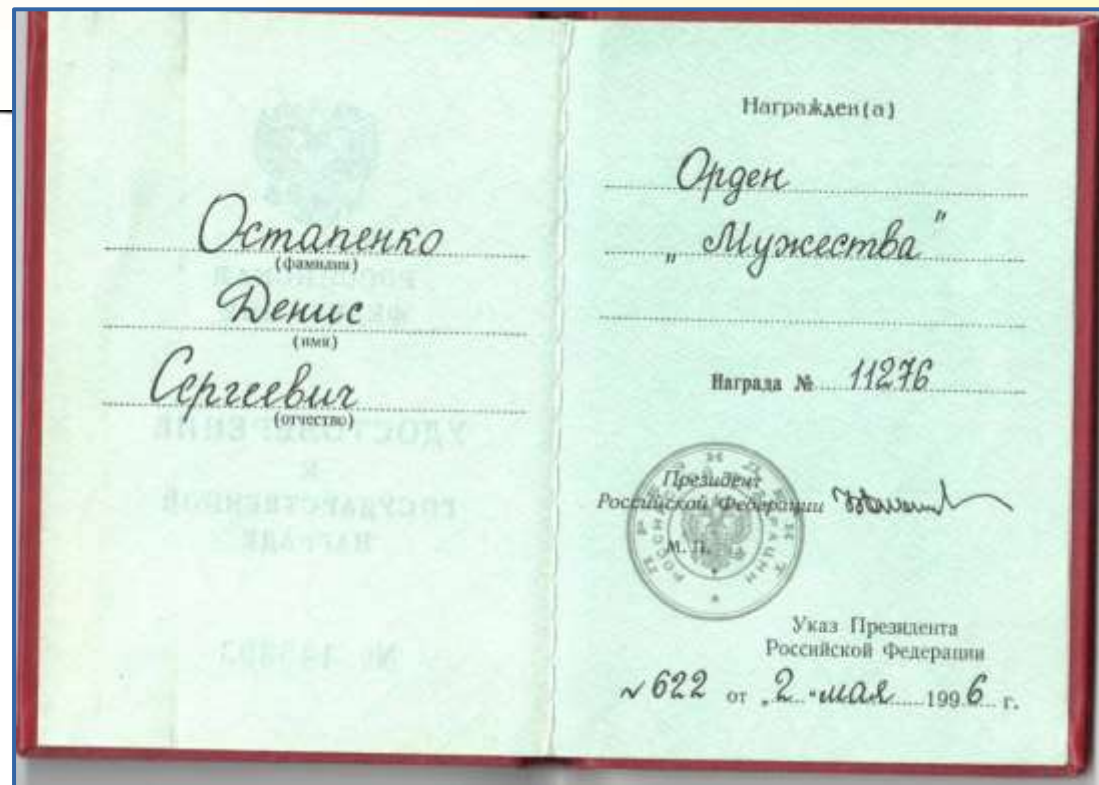 Остапенко
(фамилия)
Денис
(имя)
Сергеевич
(отчество)
Награжден(а)
Орден
„ Мужества "
Награда № 11276
Президент
Российской Федерации
М. П.
Указ Президента
Российской Федерации
№ 622 от „2" мая 1996 г.